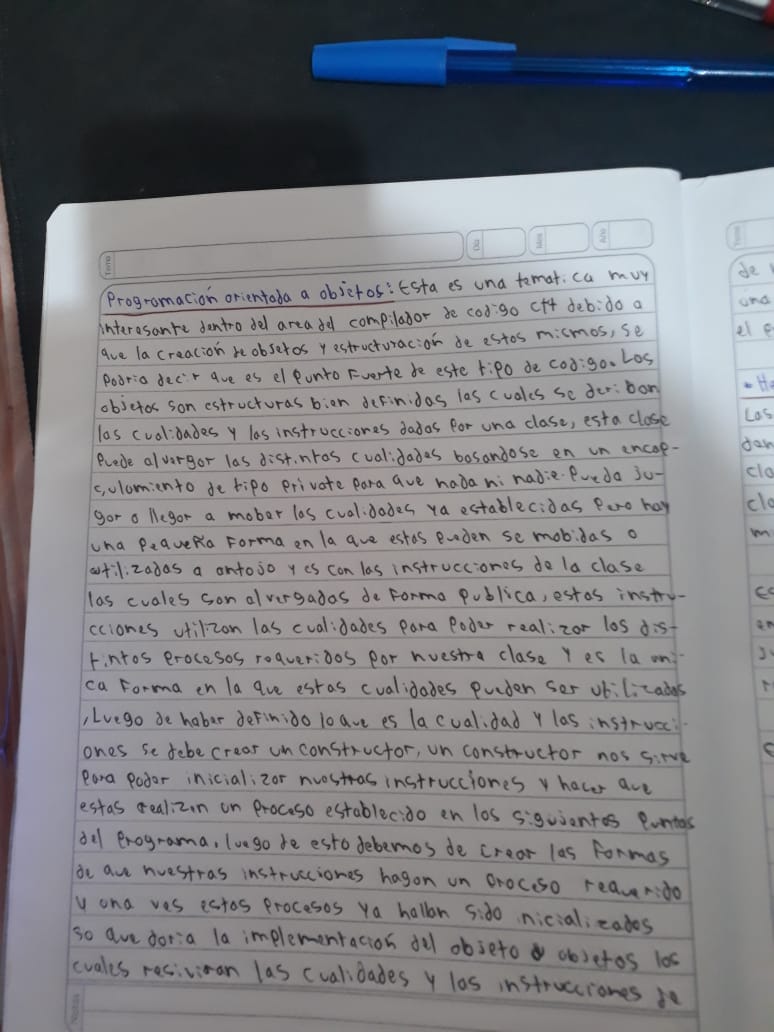 Tema
Día
Mes
Año
Programación orientada a objetos: Esta es una tematica muy
interesante dentro del area del compilador de codigo c++ debido a
que la creación de objetos y estructuración de estos mismos, se
podria decir que es el punto fuerte de este tipo de codigo. Los
objetos son estructuras bien definidas las cuales se deriban
las cualidades y las instrucciones dadas por una clase, esta clase
puede alvergar las distintas cualidades basandose en un encap-
sulamiento de tipo private para que nada ni nadie pueda ju-
gar o llegar a mober las cualidades ya establecidas pero hay
una pequeña forma en la que estas pueden se mobidas o
utilizadas a antojo y es con las instrucciones de la clase
las cuales son alvergadas de forma publica, estas instru-
cciones utilizan las cualidades para poder realizar los dis-
tintos procesos requeridos por nuestra clase y es la uni-
ca forma en la que estas cualidades pueden ser utilizadas
,Luego de haber definido lo que es la cualidad y las instrucci-
ones se debe crear un constructor, un constructor nos sirve
para poder inicializar nuestras instrucciones y hacer que
estas realizen un proceso establecido en los siguientes puntos
del programa, luego de esto debemos de crear las formas
de que nuestras instrucciones hagan un proceso requerido
y una ves estos procesos ya hallan sido inicializados
so quedaria la implementación del objeto o objetos los
cuales resiviran las cualidades y las instrucciones de
Notas
de
una
el
Los
dan
cla
cla
m